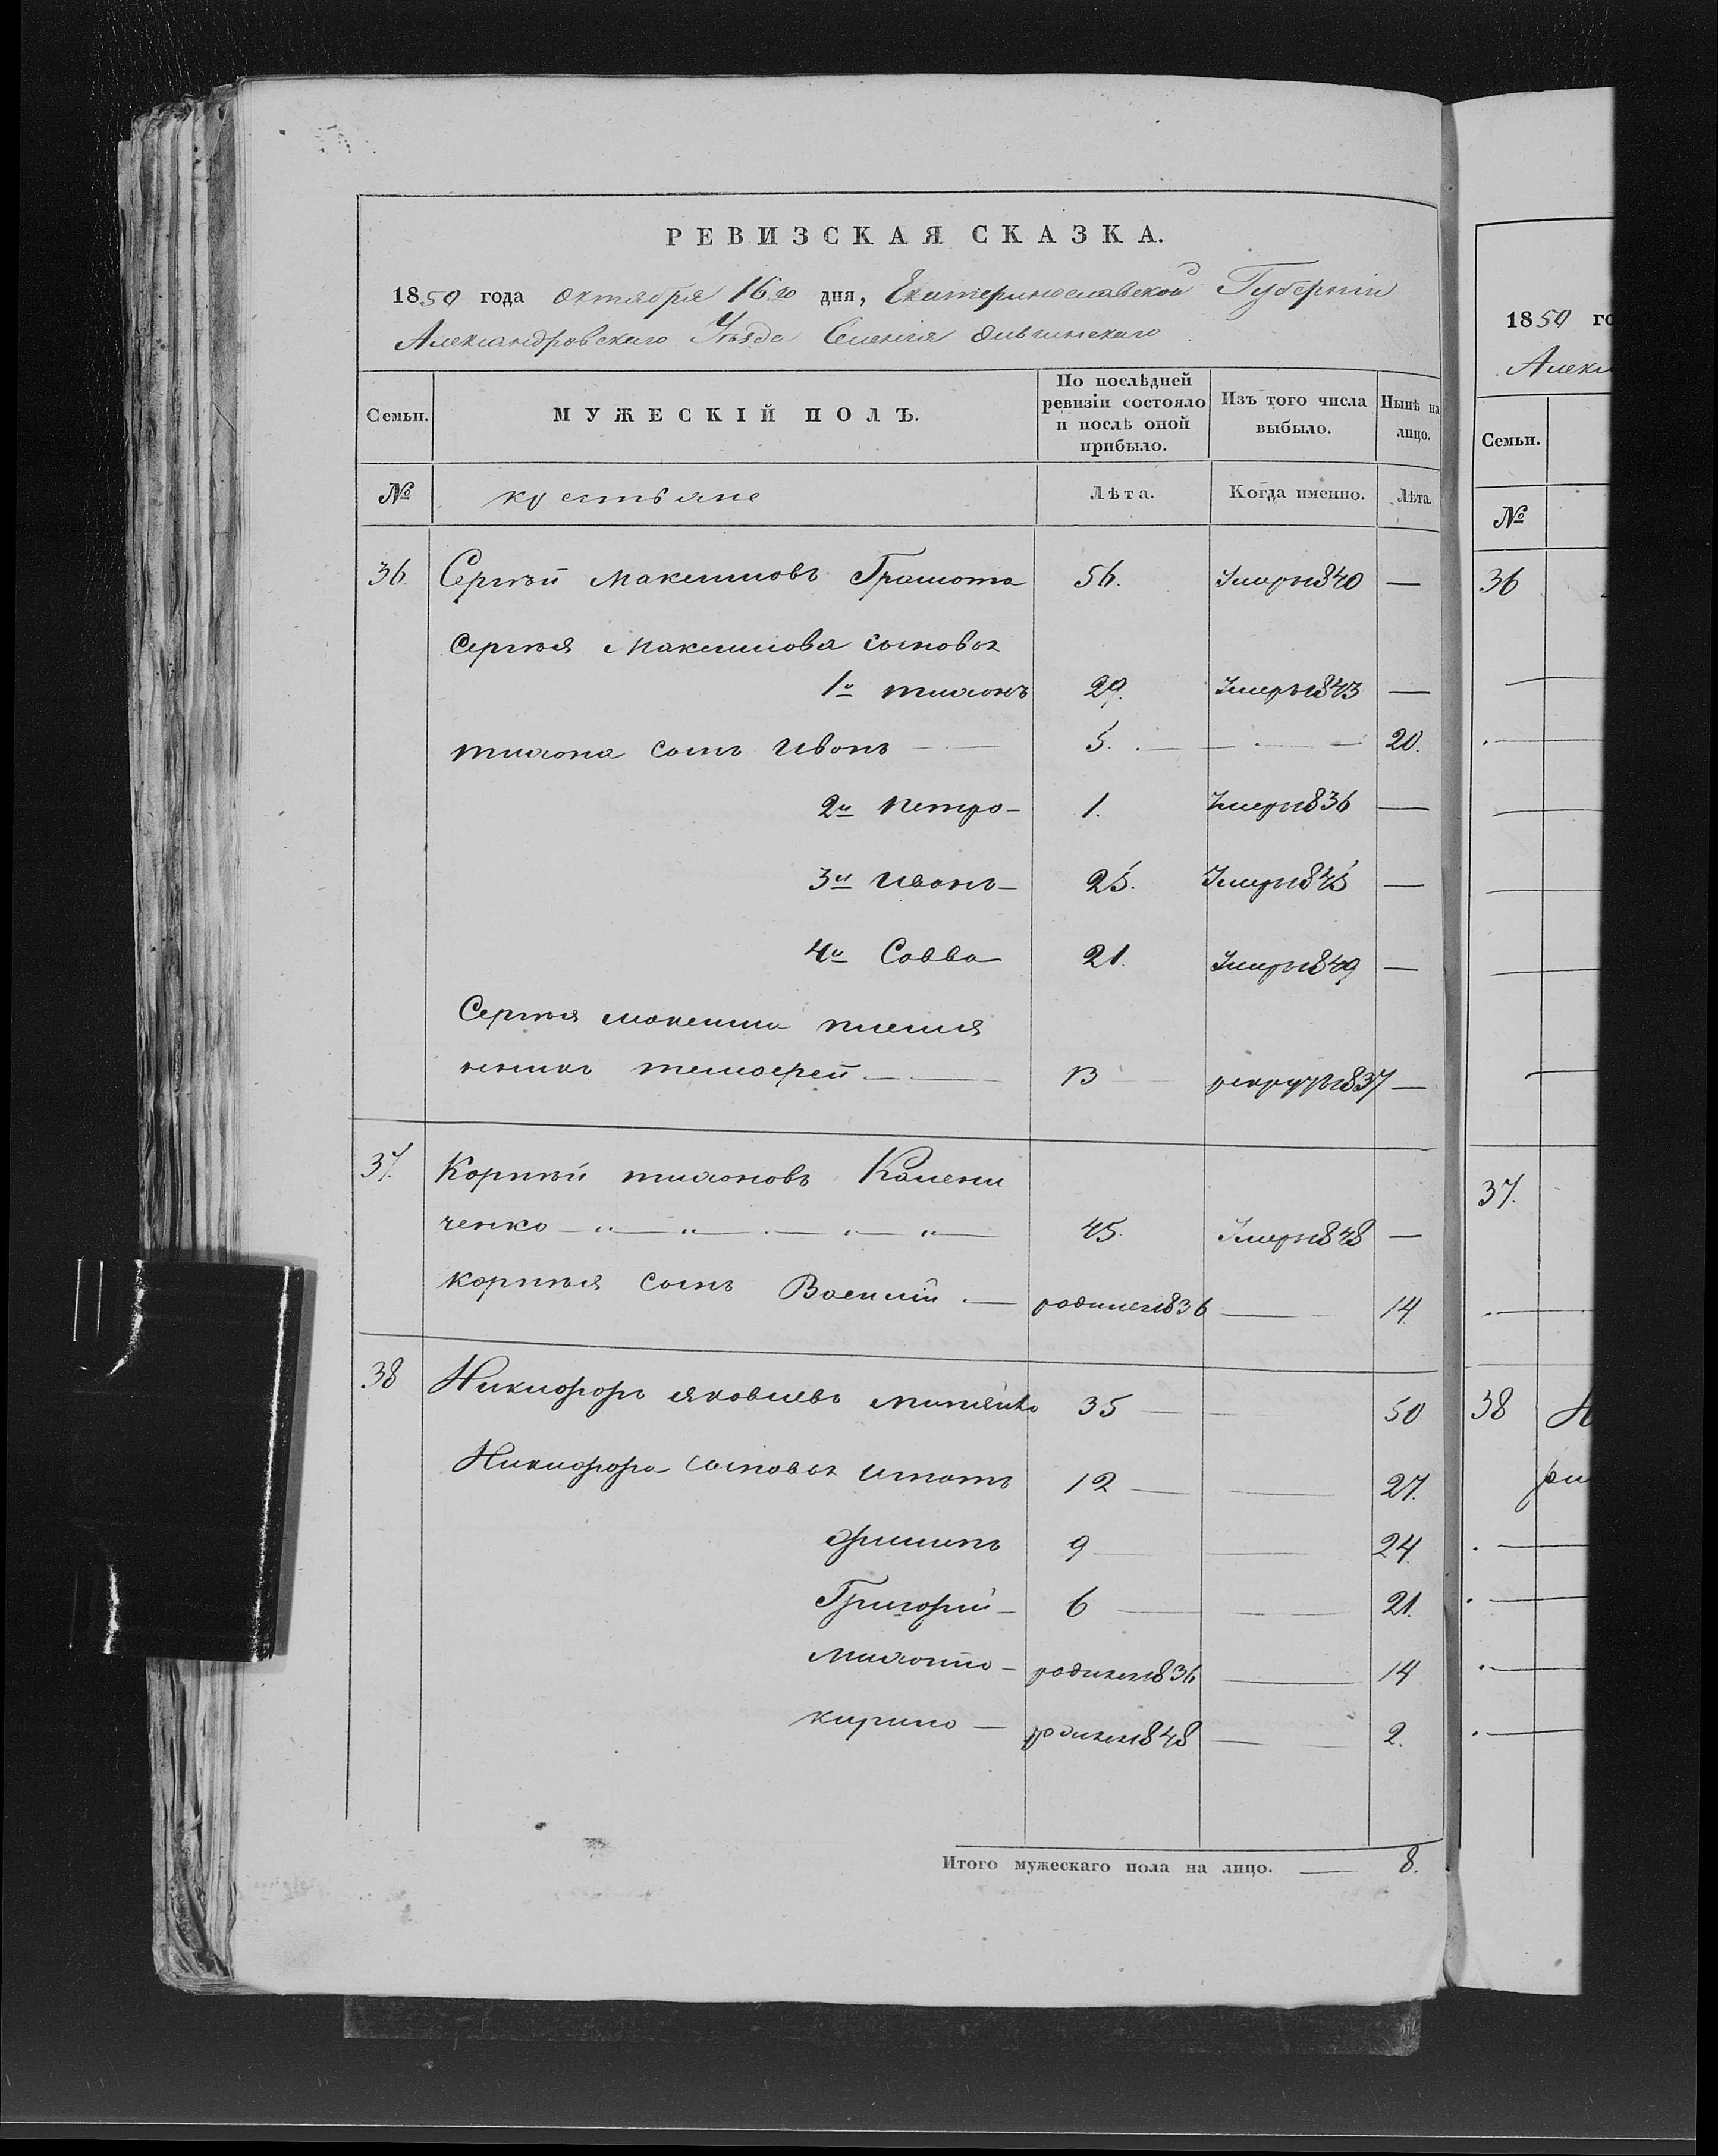 РЕВИЗСКАЯ СКАЗКА.
1850 года октября 16го дня, Екатеринославской Губерніи
Александровскаго Уѣзда Селенія
Семьи. МУЖЕСКІЙ ПОЛЪ. По послѣдней ревизіи состояло и послѣ оной прибыло. Изъ того числа выбыло. Нынѣ на лицо.
№ крестьяне Лѣта. Когда именно. Лѣта.
36. Сергѣй Максимовъ Грамота 56. Умеръ 1840 —
Сергѣя Максимова сыновья
1й тихонъ 29. Умеръ 1843 —
тихона сынъ Иванъ — 5. — — 20.
2й петро — 1. Умеръ 1836 —
3й Иванъ — 25. Умеръ 1845 —
4й Савва 21. Умеръ 1849 —
Сергѣя максима племя
никъ тимофей — 13 рекрутъ 1837 —
37. Корнѣй тихоновъ Камени
ченко — „ — „ — „ — „ — 45. Умеръ 1848 —
корнѣя сынъ Василій — родился 1836 — 14
38 Никифоръ яковлевъ митенко 35 — — 50
Никифора сыновья игнатъ 12 — — 27.
филипъ 9 — — 24.
Григорій — 6 — — 21.
родился 1836 — 14
кирило — родился 1848 — 2.
Итого мужескаго пола на лицо. — 8.
1850 го
Алекс
Семьи.
№
36
37.
38